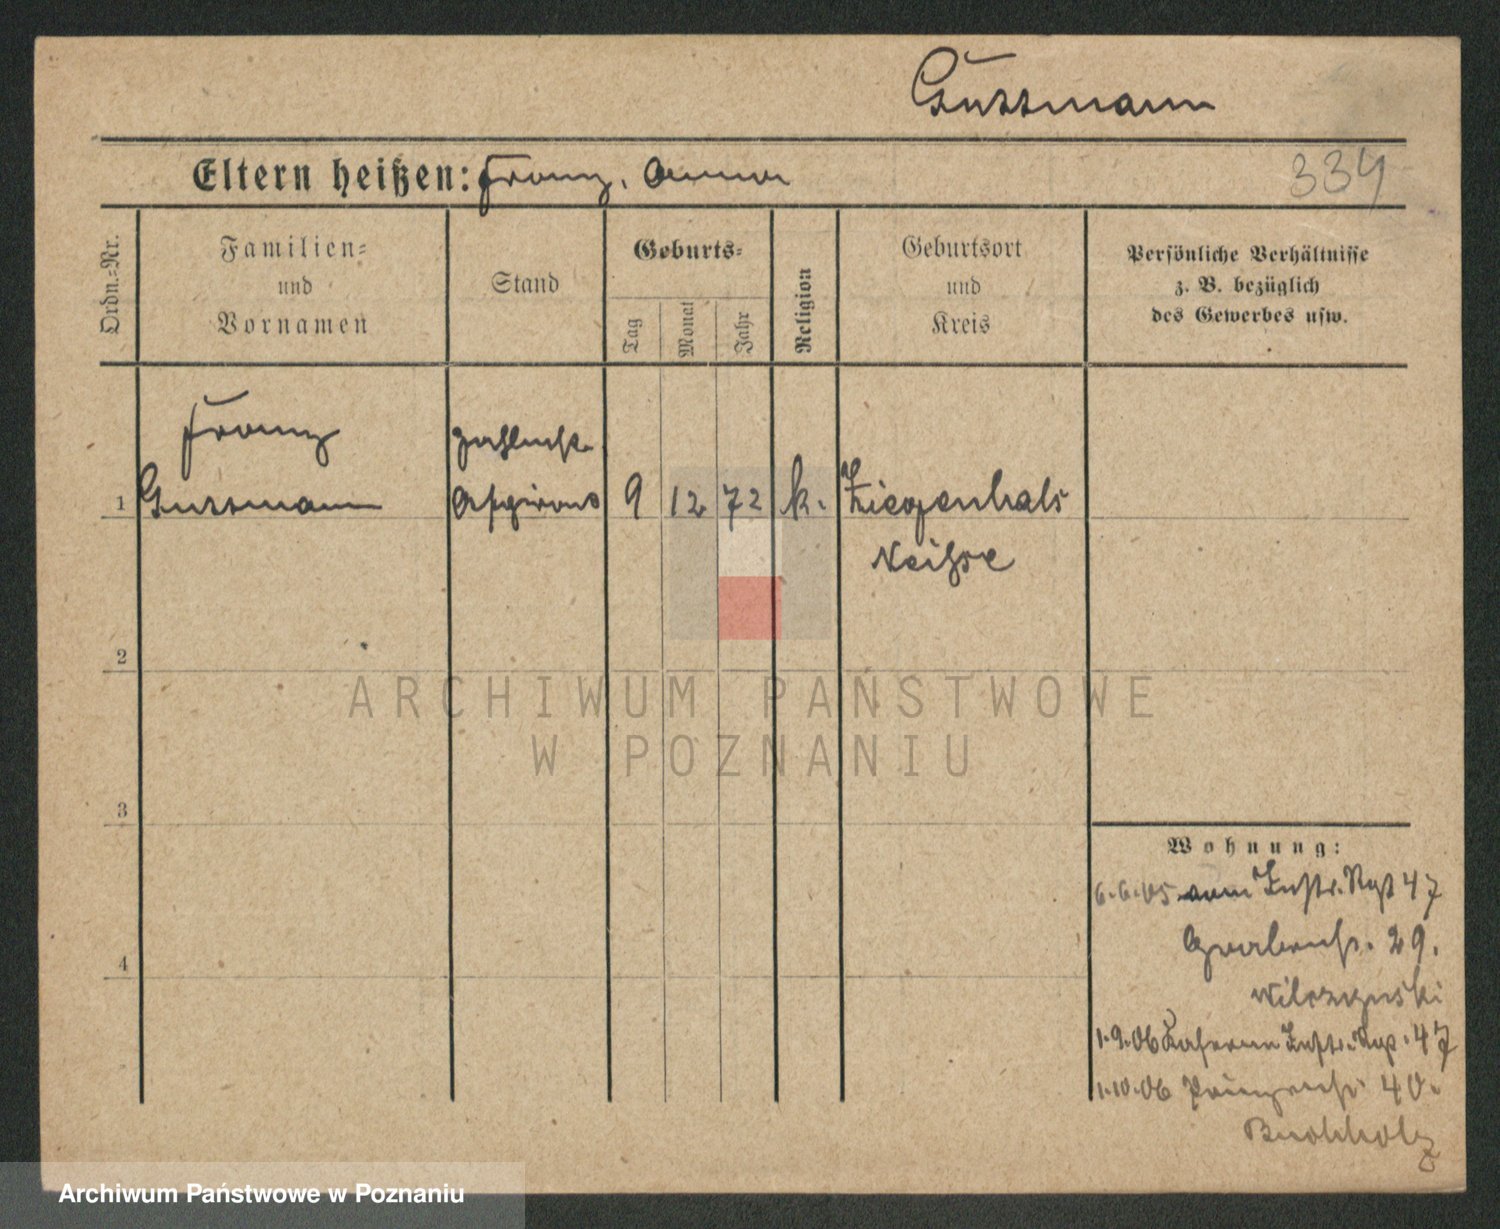 Gussmann
Eltern heißen: Franz, Anna
334
Ordn.-Nr.
Familien-
und
Vornamen
Stand
Geburts-
Tag
Monat
Jahr
Religion
Geburtsort
und
Kreis
Persönliche Verhältnisse
z. B. bezüglich
des Gewerbes usw.
Franz
Zahlmstr.
1 Gussmann Aspirant 9 12 72 k. Ziegenhals
Neisse
2
ARCHIWUM PAŃSTWOWE
W POZNANIU
3
Wohnung:
6.6.05 vom Inftr. Rgt 47
Grabenstr. 29.
Wilczynski
4
1.9.06 Kaserne Inftr. Rgt. 47
1.10.06 Prinzenstr 40.
Buchholz
Archiwum Państwowe w Poznaniu